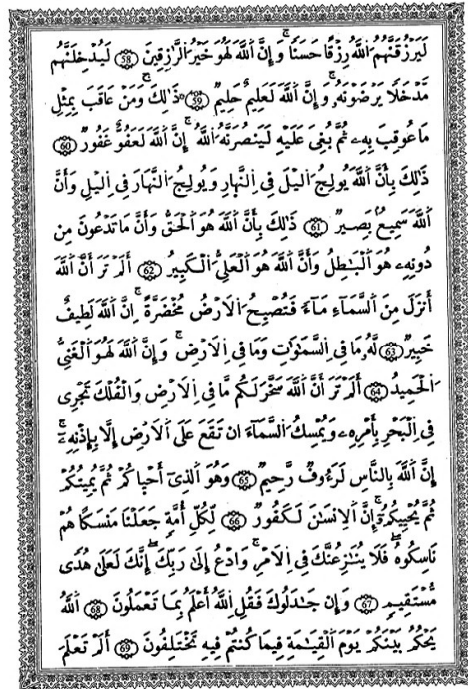 لَيَرْزُقَنَّهُمُ اللَّهُ رِزْقًا حَسَنًا وَإِنَّ اللَّهَ لَهُوَ خَيْرُ الرَّازِقِينَ 58 لَيُدْخِلَنَّهُم
مَّدْخَلًا يَرْضَوْنَهُ وَإِنَّ اللَّهَ لَعَلِيمٌ حَلِيمٌ 59 ذَٰلِكَ وَمَنْ عَاقَبَ بِمِثْلِ
مَا عُوقِبَ بِهِ ثُمَّ بُغِيَ عَلَيْهِ لَيَنصُرَنَّهُ اللَّهُ إِنَّ اللَّهَ لَعَفُوٌّ غَفُورٌ 60
ذَٰلِكَ بِأَنَّ اللَّهَ يُولِجُ اللَّيْلَ فِي النَّهَارِ وَيُولِجُ النَّهَارَ فِي اللَّيْلِ وَأَنَّ
اللَّهَ سَمِيعٌ بَصِيرٌ 61 ذَٰلِكَ بِأَنَّ اللَّهَ هُوَ الْحَقُّ وَأَنَّ مَا تَدْعُونَ مِن
دُونِهِ هُوَ الْبَاطِلُ وَأَنَّ اللَّهَ هُوَ الْعَلِيُّ الْكَبِيرُ 62 أَلَمْ تَرَ أَنَّ اللَّهَ
أَنزَلَ مِنَ السَّمَاءِ مَاءً فَتُصْبِحُ الْأَرْضُ مُخْضَرَّةً إِنَّ اللَّهَ لَطِيفٌ
خَبِيرٌ 63 لَّهُ مَا فِي السَّمَٰوَٰتِ وَمَا فِي الْأَرْضِ وَإِنَّ اللَّهَ لَهُوَ الْغَنِيُّ
الْحَمِيدُ 64 أَلَمْ تَرَ أَنَّ اللَّهَ سَخَّرَ لَكُم مَّا فِي الْأَرْضِ وَالْفُلْكَ تَجْرِي
فِي الْبَحْرِ بِأَمْرِهِ وَيُمْسِكُ السَّمَاءَ أَن تَقَعَ عَلَى الْأَرْضِ إِلَّا بِإِذْنِهِ
إِنَّ اللَّهَ بِالنَّاسِ لَرَءُوفٌ رَّحِيمٌ 65 وَهُوَ الَّذِي أَحْيَاكُمْ ثُمَّ يُمِيتُكُمْ
ثُمَّ يُحْيِيكُمْ إِنَّ الْإِنسَٰنَ لَكَفُورٌ 66 لِّكُلِّ أُمَّةٍ جَعَلْنَا مَنسَكًا هُمْ
نَاسِكُوهُ فَلَا يُنَٰزِعُنَّكَ فِي الْأَمْرِ وَادْعُ إِلَىٰ رَبِّكَ إِنَّكَ لَعَلَىٰ هُدًى
مُّسْتَقِيمٍ 67 وَإِن جَٰدَلُوكَ فَقُلِ اللَّهُ أَعْلَمُ بِمَا تَعْمَلُونَ 68 اللَّهُ
يَحْكُمُ بَيْنَكُمْ يَوْمَ الْقِيَٰمَةِ فِيمَا كُنتُمْ فِيهِ تَخْتَلِفُونَ 69 أَلَمْ تَعْلَمْ